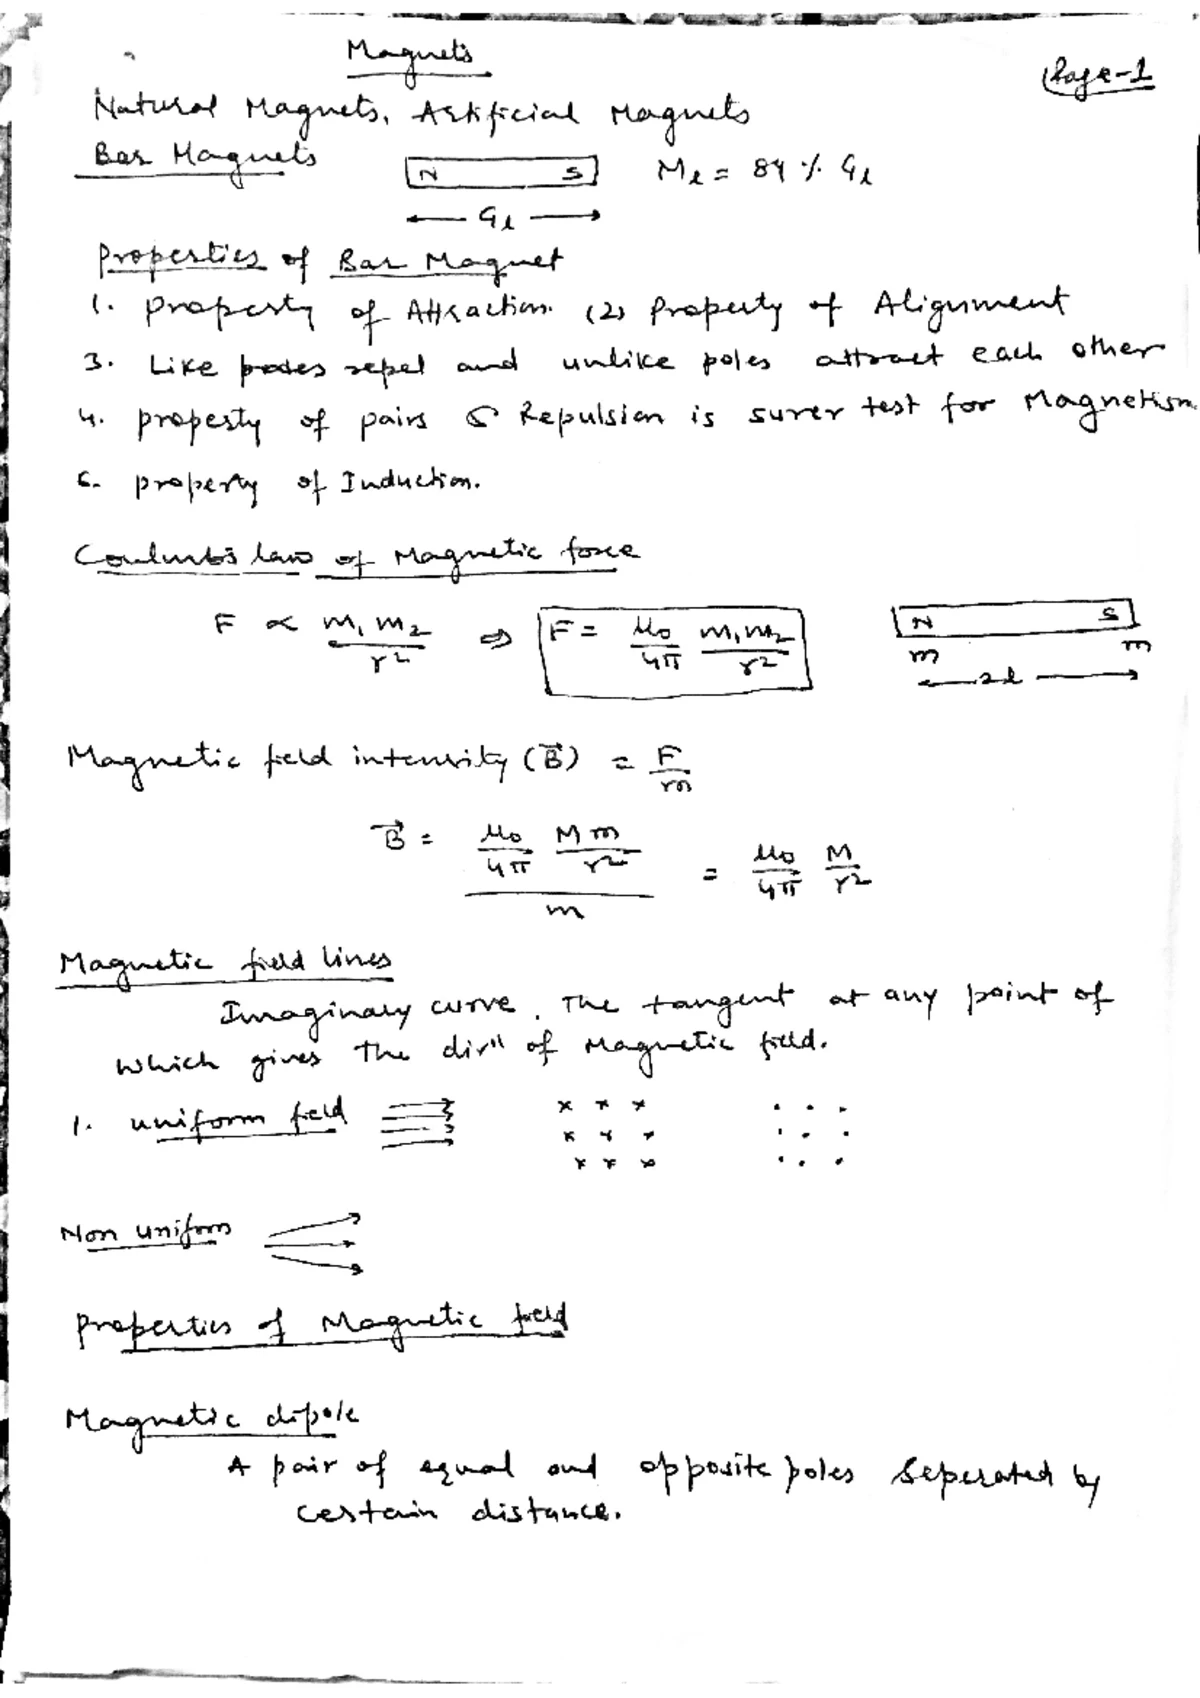 Magnets
Page-1
Natural Magnets, Artificial Magnets
Bar Magnets
N S
Mℓ = 84 % Gℓ
Gℓ
Properties of Bar Magnet
1. Property of Attraction. (2) Property of Alignment
3. Like poles repel and unlike poles attract each other
4. property of pairs 5 Repulsion is surer test for Magnetism
6. property of Induction.
Coulumb's law of Magnetic force
F ∝ m₁ m₂ / r² ⇒ F = μ₀/4π m₁m₂/r²
N S
m m
2l
Magnetic field intensity (B⃗) = F/m
B⃗ = (μ₀/4π Mm/r²)/m = μ₀/4π M/r²
Magnetic field lines
Imaginary curve. The tangent at any point of
which gives the dirⁿ of Magnetic field.
1. uniform field
Non uniform
Properties of Magnetic field
Magnetic dipole
A pair of equal and opposite poles seperated by
certain distance.